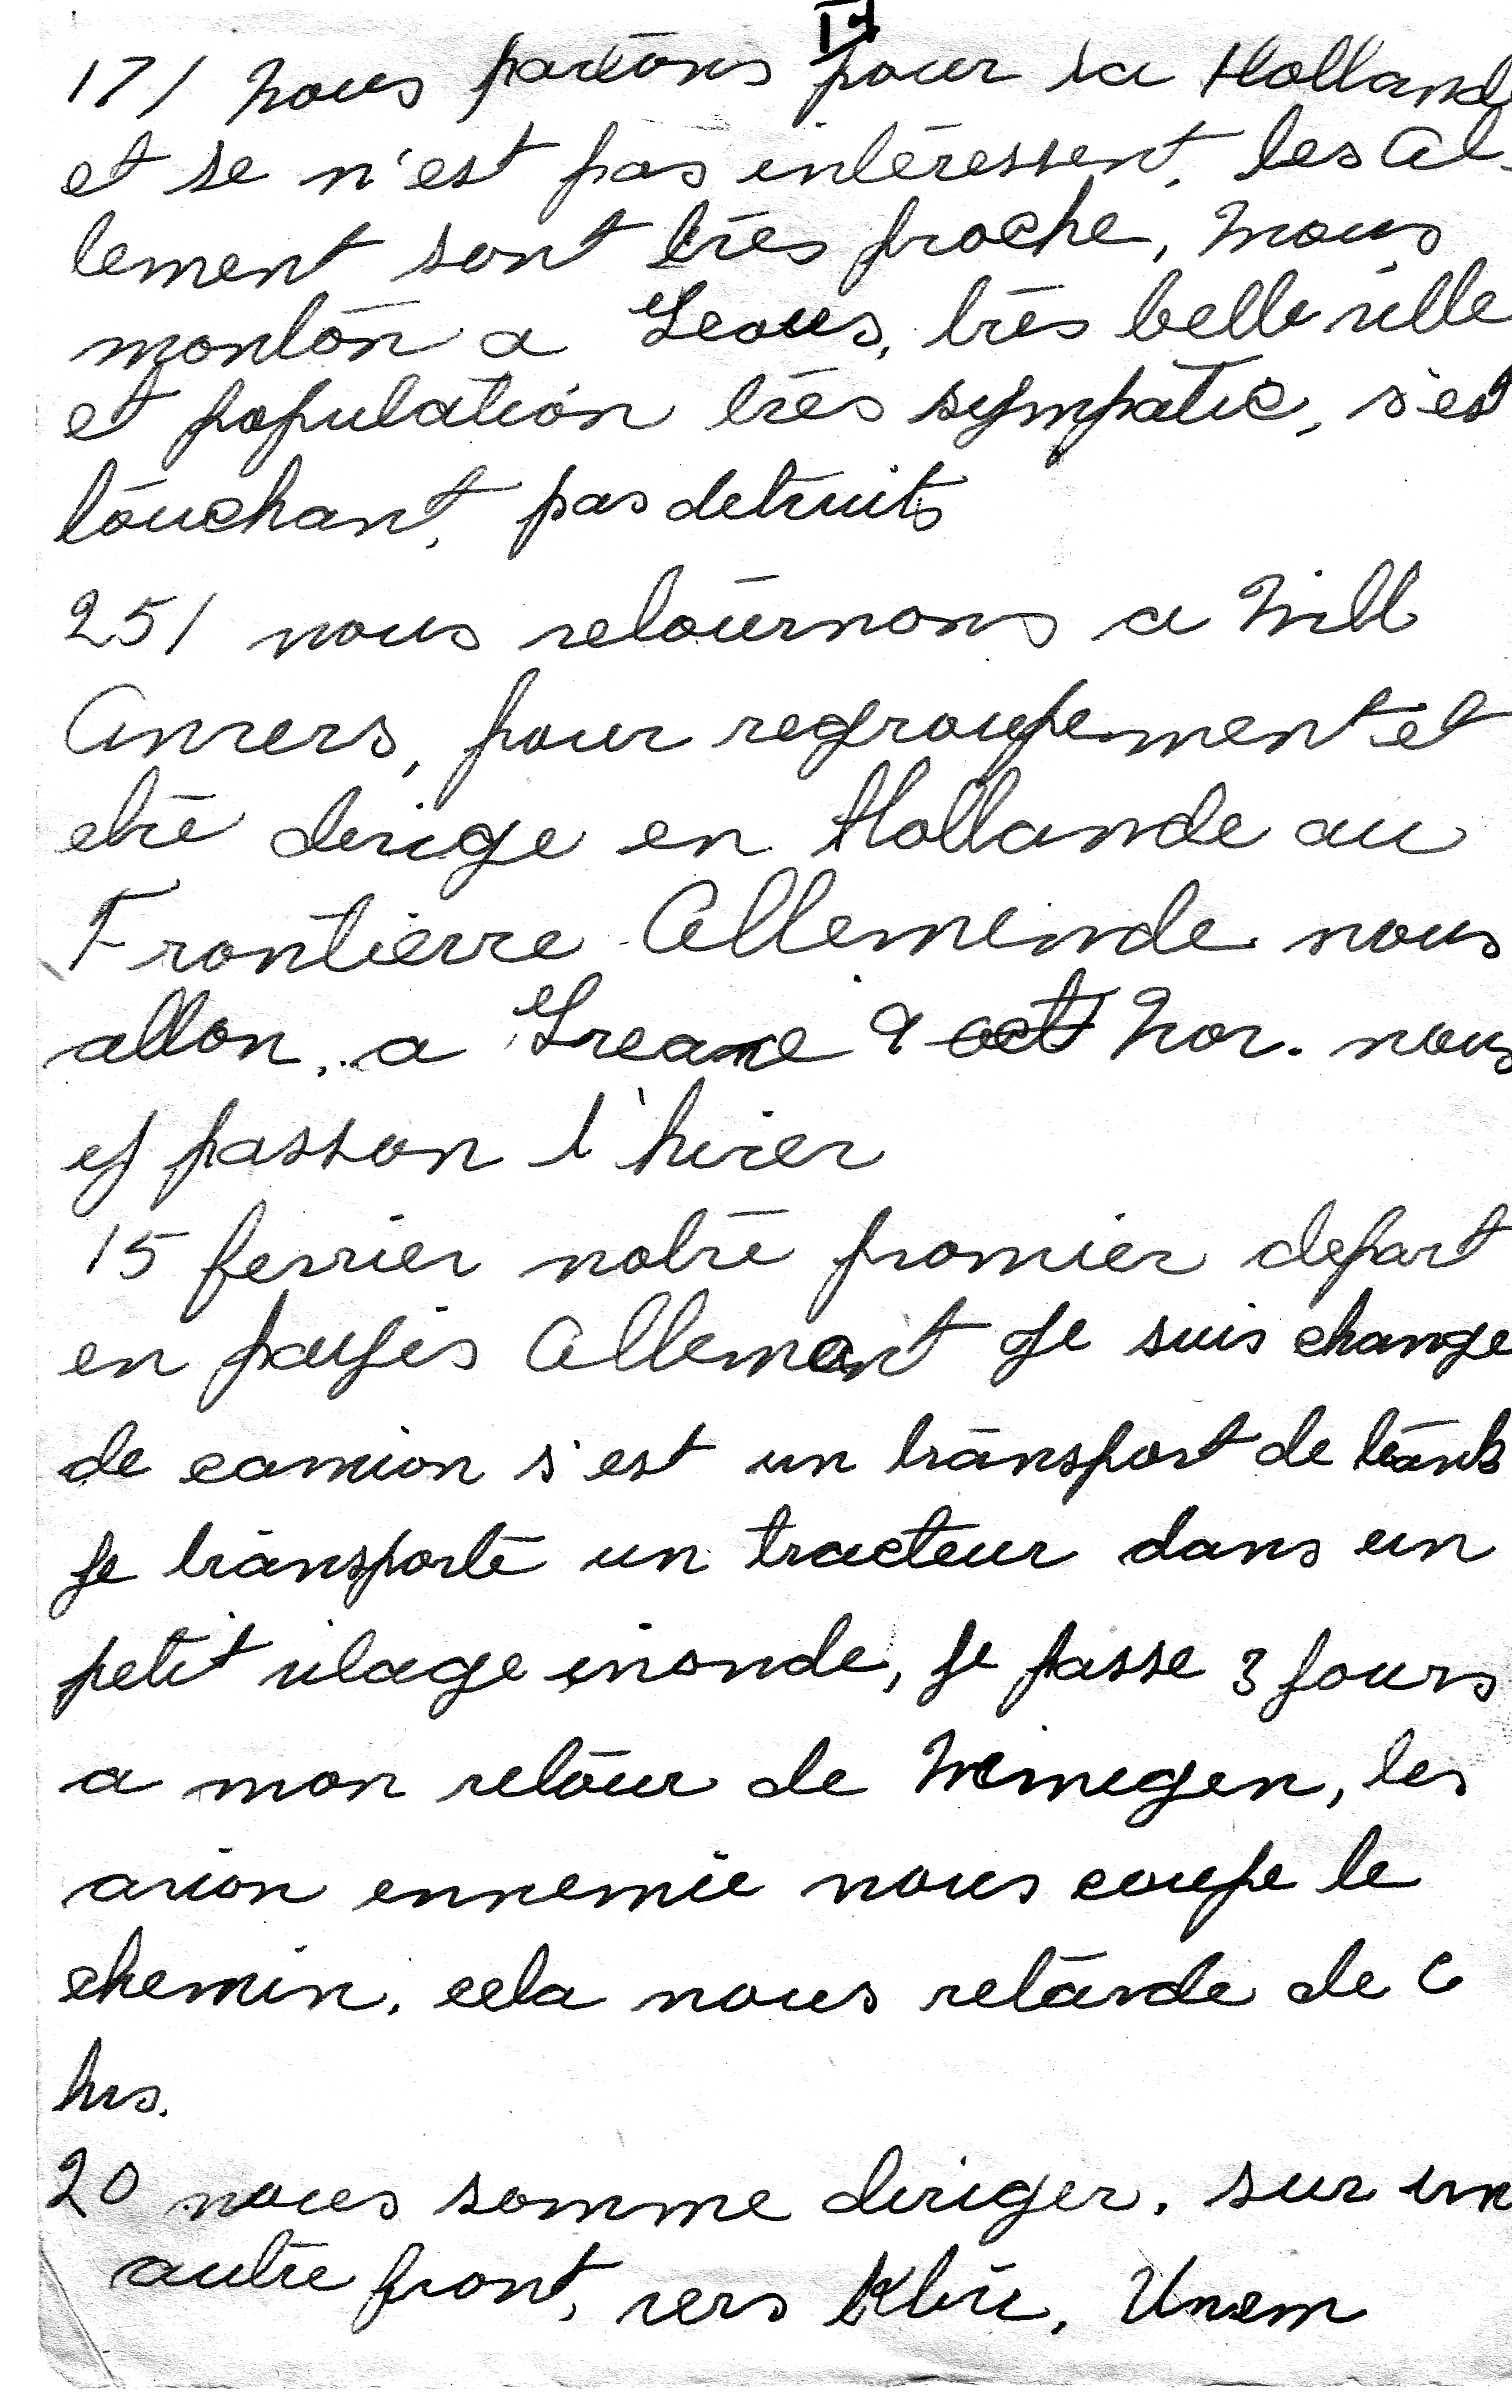 17/ nous partons pour la Hollande
et se n'est pas intéressent, les Al-
lement sont très proche, nous
montón a Geous, très belle ville
et populatión très sympatic, s'est
touchant, pas detruits
25/ nous retournons a Nill
Anvers, pour regroupement et
etre dirige en Hollande au
Frontierre Allemende nous
allon, a Greave 9 oct Nov. nous
y passon l'hiver
15 fevrier notre promier depart
en payis Allemant Je suis change
de camion s'est un transport de tank
je transporte un tracteur dans un
petit vilage inonde, je passe 3 jours
a mon retour de Nimegen, les
avion ennemie nous coupe le
chemin, cela nous retarde de 6
hrs.
20 nous somme diriger, sur un
autre front, vers Unem